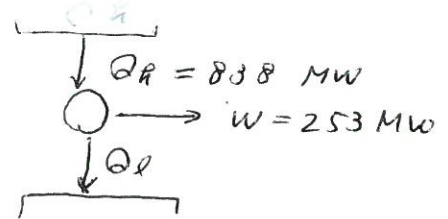 Qh = 838 MW
W = 253 MW
Ql